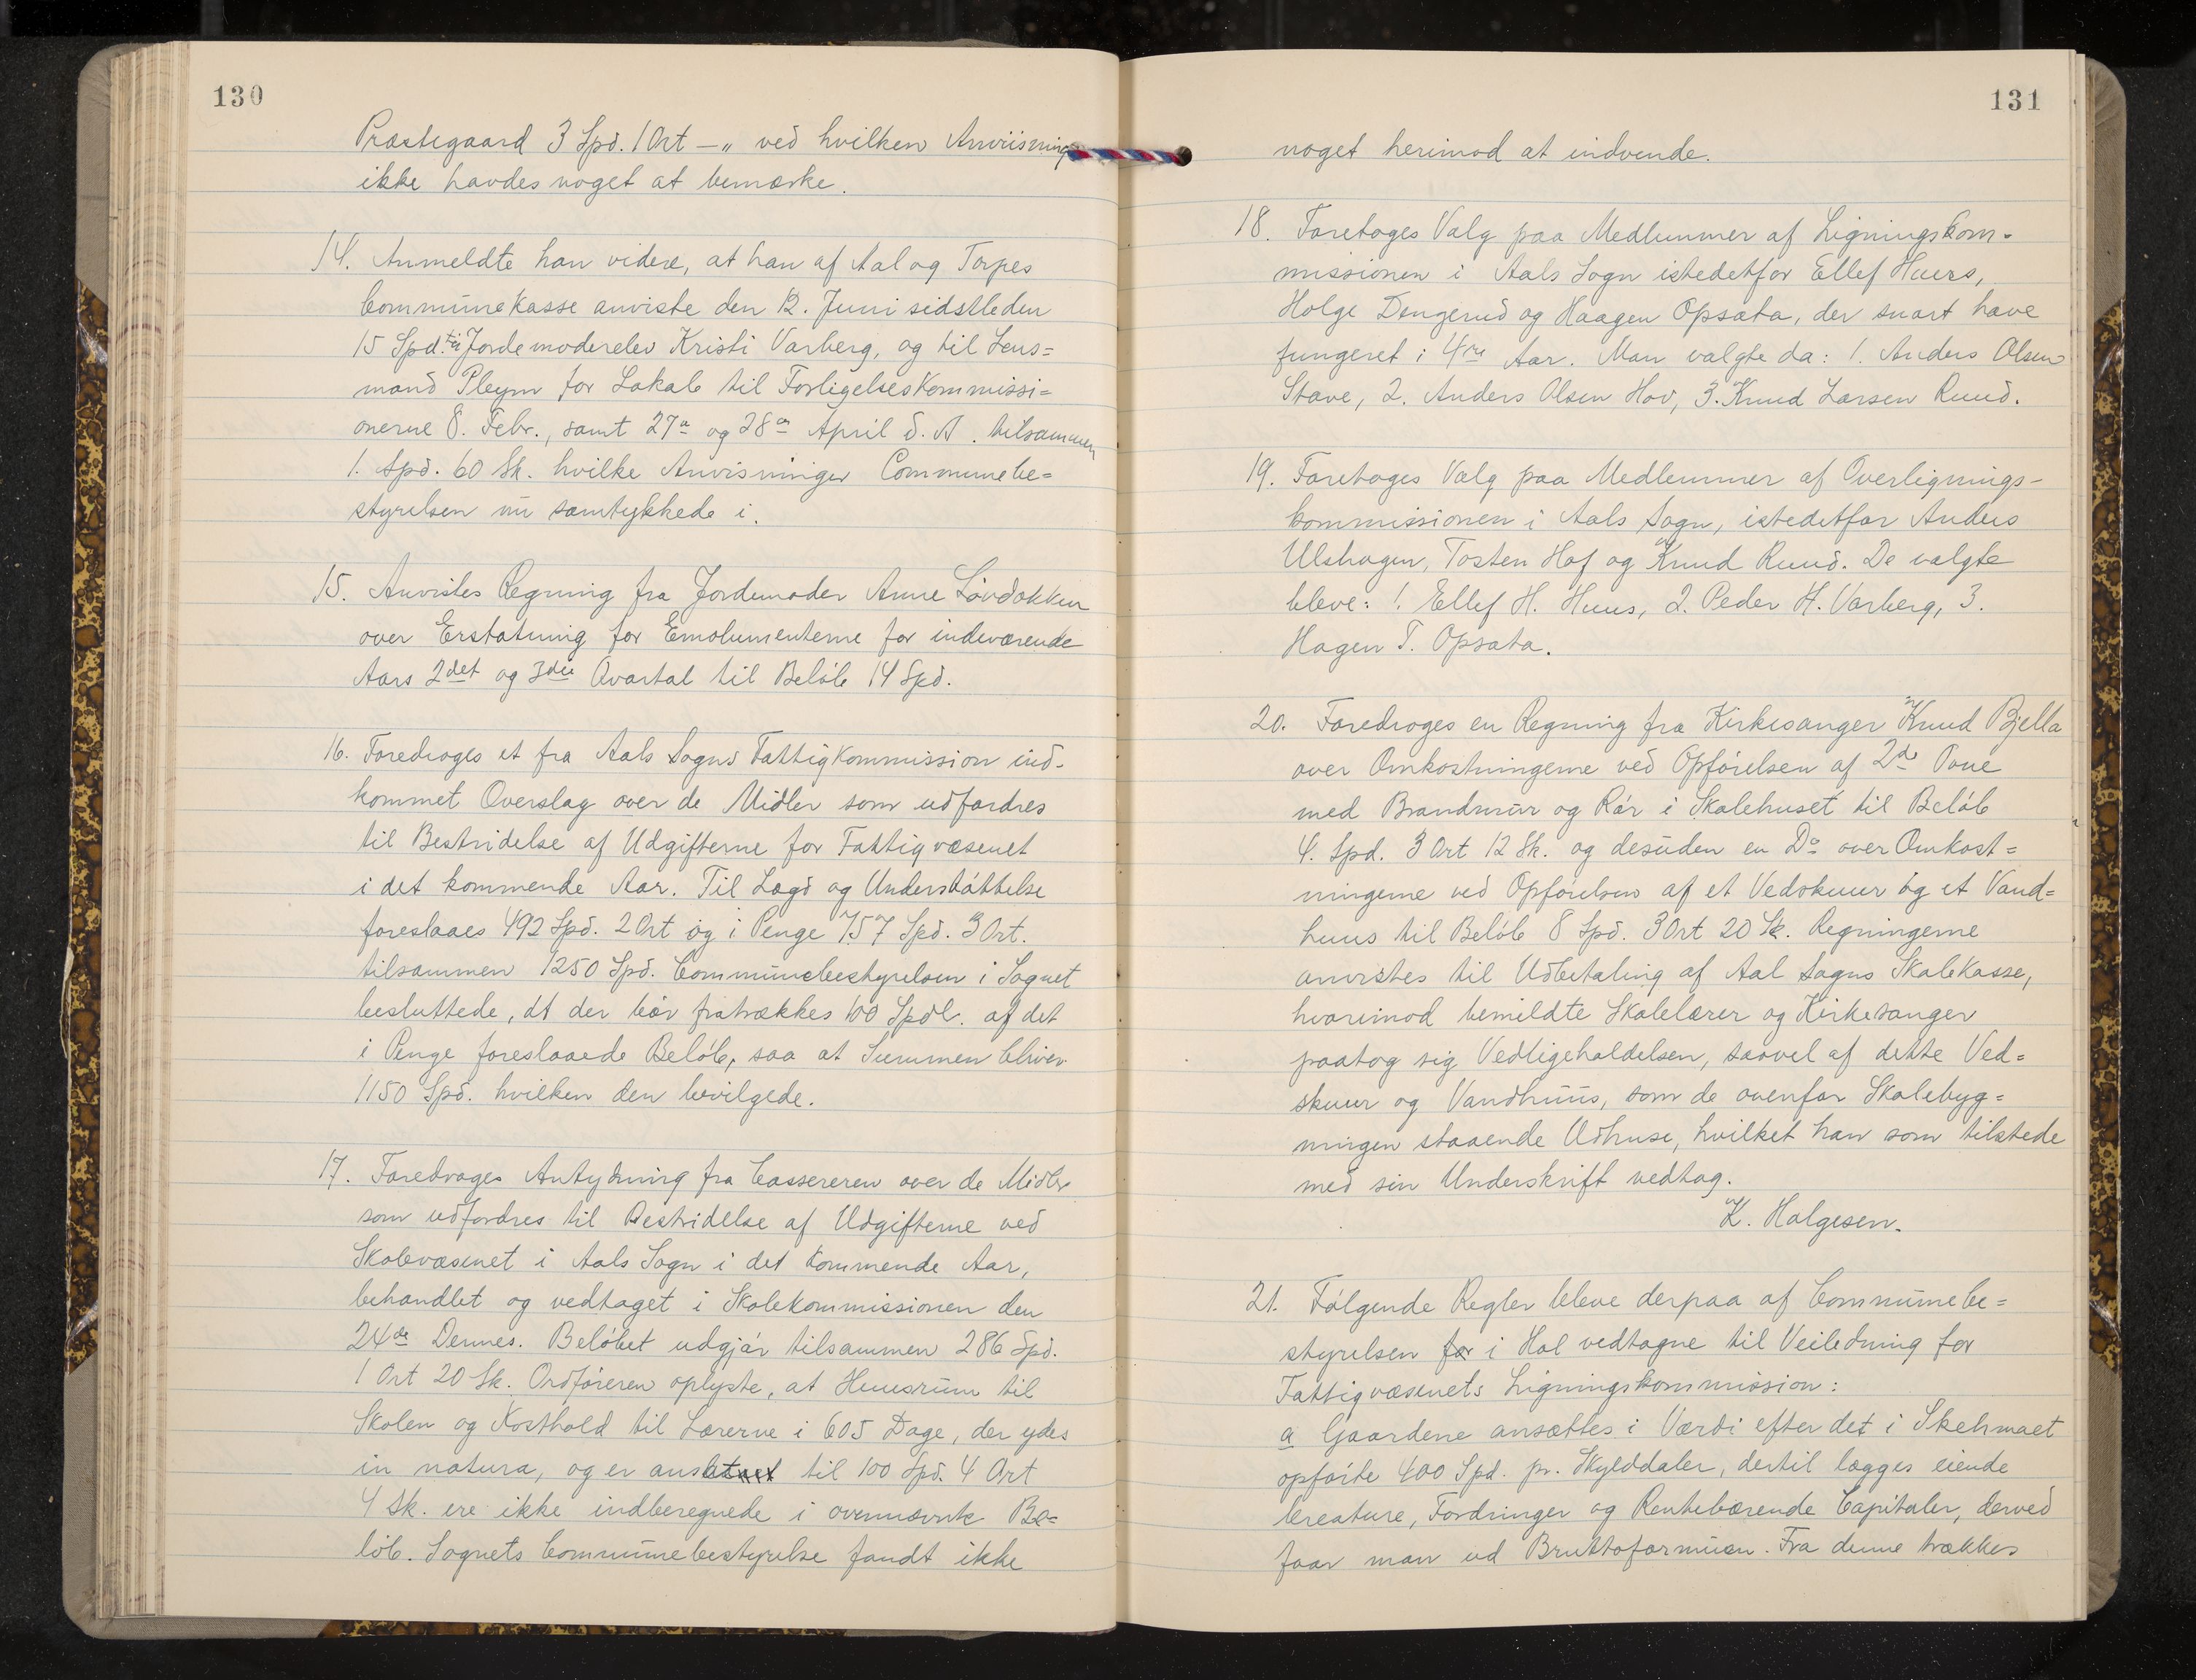 130
Præstegaard 3 Spd. 1 Ort —„ ved hvilken Anviisning
ikke havdes noget at bemærke.
14. Anmeldte han videre, at han af Aal og Torpes
Communekasse anviste den 12. Juni sidstleden
15 Spd. til Jordemoderelev Kristi Varberg, og til Lens=
mand Pleym for Lokale til Forligelseskommissi=
onerne 8. Febr., samt 27de og 28de April d. A. tilsammen
1. Spd. 60 Sk. hvilke Anvisninger Communebe=
styrelsen nu samtykkede i.
15. Anvistes Regning fra Jordemoder Anne Lövdokken
over Erstatning for Emolumenterne for indeværende
Aars 2det og 3die Qvartal til Belöb 14 Spd.
16. Foredroges et fra Aals Sogns Fattigkommission ind-
kommet Overslag over de Midler som udfordres
til Bestridelse af Udgifterne for Fattigvæsenet
i det kommende Aar. Til Lægd og Understöttelse
foreslaaes 492 Spd. 2 Ort og i Penge 757 Spd. 3 Ort.
tilsammen 1250 Spd. Communebestyrelsen i Sognet
besluttede, at der bör fratrækkes 100 Spdl. af det
i Penge foreslaaede Belöb, saa at Summen bliver
1150 Spd. hvilken den bevilgede.
17. Foredroges Antydning fra Cassereren over de Midler
som udfordres til Bestridelse af Udgifterne ved
Skolevæsenet i Aals Sogn i det kommende Aar,
behandlet og vedtaget i Skolekommissionen den
24de Dennes. Belöbet udgjör tilsammen 286 Spd.
1 Ort 20 Sk. Ordföreren oplyste, at Huusrum til
Skolen og Kosthold til Lærerne i 605 Dage, der ydes
in natura, og er anslaaet til 100 Spd. 4 Ort
4 Sk. ere ikke indberegnede i ovennævnte Be=
löb. Sognets Communebestyrelse fandt ikke
131
noget herimod at indvende.
18. Foretoges Valg paa Medlemmer af Ligningskom-
missionen i Aals Sogn istedetfor Ellef Huus,
Holge Dengerud og Haagen Opsata, der snart have
fungeret i 4re Aar. Man valgte da: 1. Anders Olsen
Stave, 2. Anders Olsen Hov, 3. Knud Larsen Ruud.
19. Foretoges Valg paa Medlemmer af Overlignings-
kommissionen i Aals Sogn, istedetfor Anders
Ulshagen, Tosten Hof og Knud Ruud. De valgte
bleve: 1. Ellef H. Huus, 2. Peder H. Varberg, 3.
Hagen T. Opsata.
20. Foredroges en Regning fra Kirkesanger Knud Bjella
over Omkostningerne ved Opförelsen af 2de Ovne
med Brandmur og Rör i Skolehuset til Belöb
4. Spd. 3 Ort 12 Sk. og desuden en Do over Omkost=
ningerne ved Opförelsen af et Vedskuur og et Vand=
huus til Belöb 8 Spd. 3 Ort 20 Sk. Regningerne
anvistes til Udbetaling af Aal Sogns Skolekasse,
hvorimod bemeldte Skolelærer og Kirkesanger
paatog sig Vedligeholdelsen, saavel af dette Ved=
skuur og Vandhuus, som de ovenfor Skolebyg=
ningen staaende Udhuse, hvilket han som tilstede
med sin Underskrift vedtog.
K. Holgesen.
21. Fölgende Regler bleve derpaa af Communebe=
styrelsen for i Hol vedtagne til Veiledning for
Fattigvæsenets Ligningskommission:
a Gaardene ansættes i Værdi efter det i Skehmaet
opförte 400 Spd. pr. Skylddaler, dertil lægges eiende
Creature, Fordringer og Rentebærende Capitaler, derved
faar man ud Bruttoformuen. Fra denne trækkes